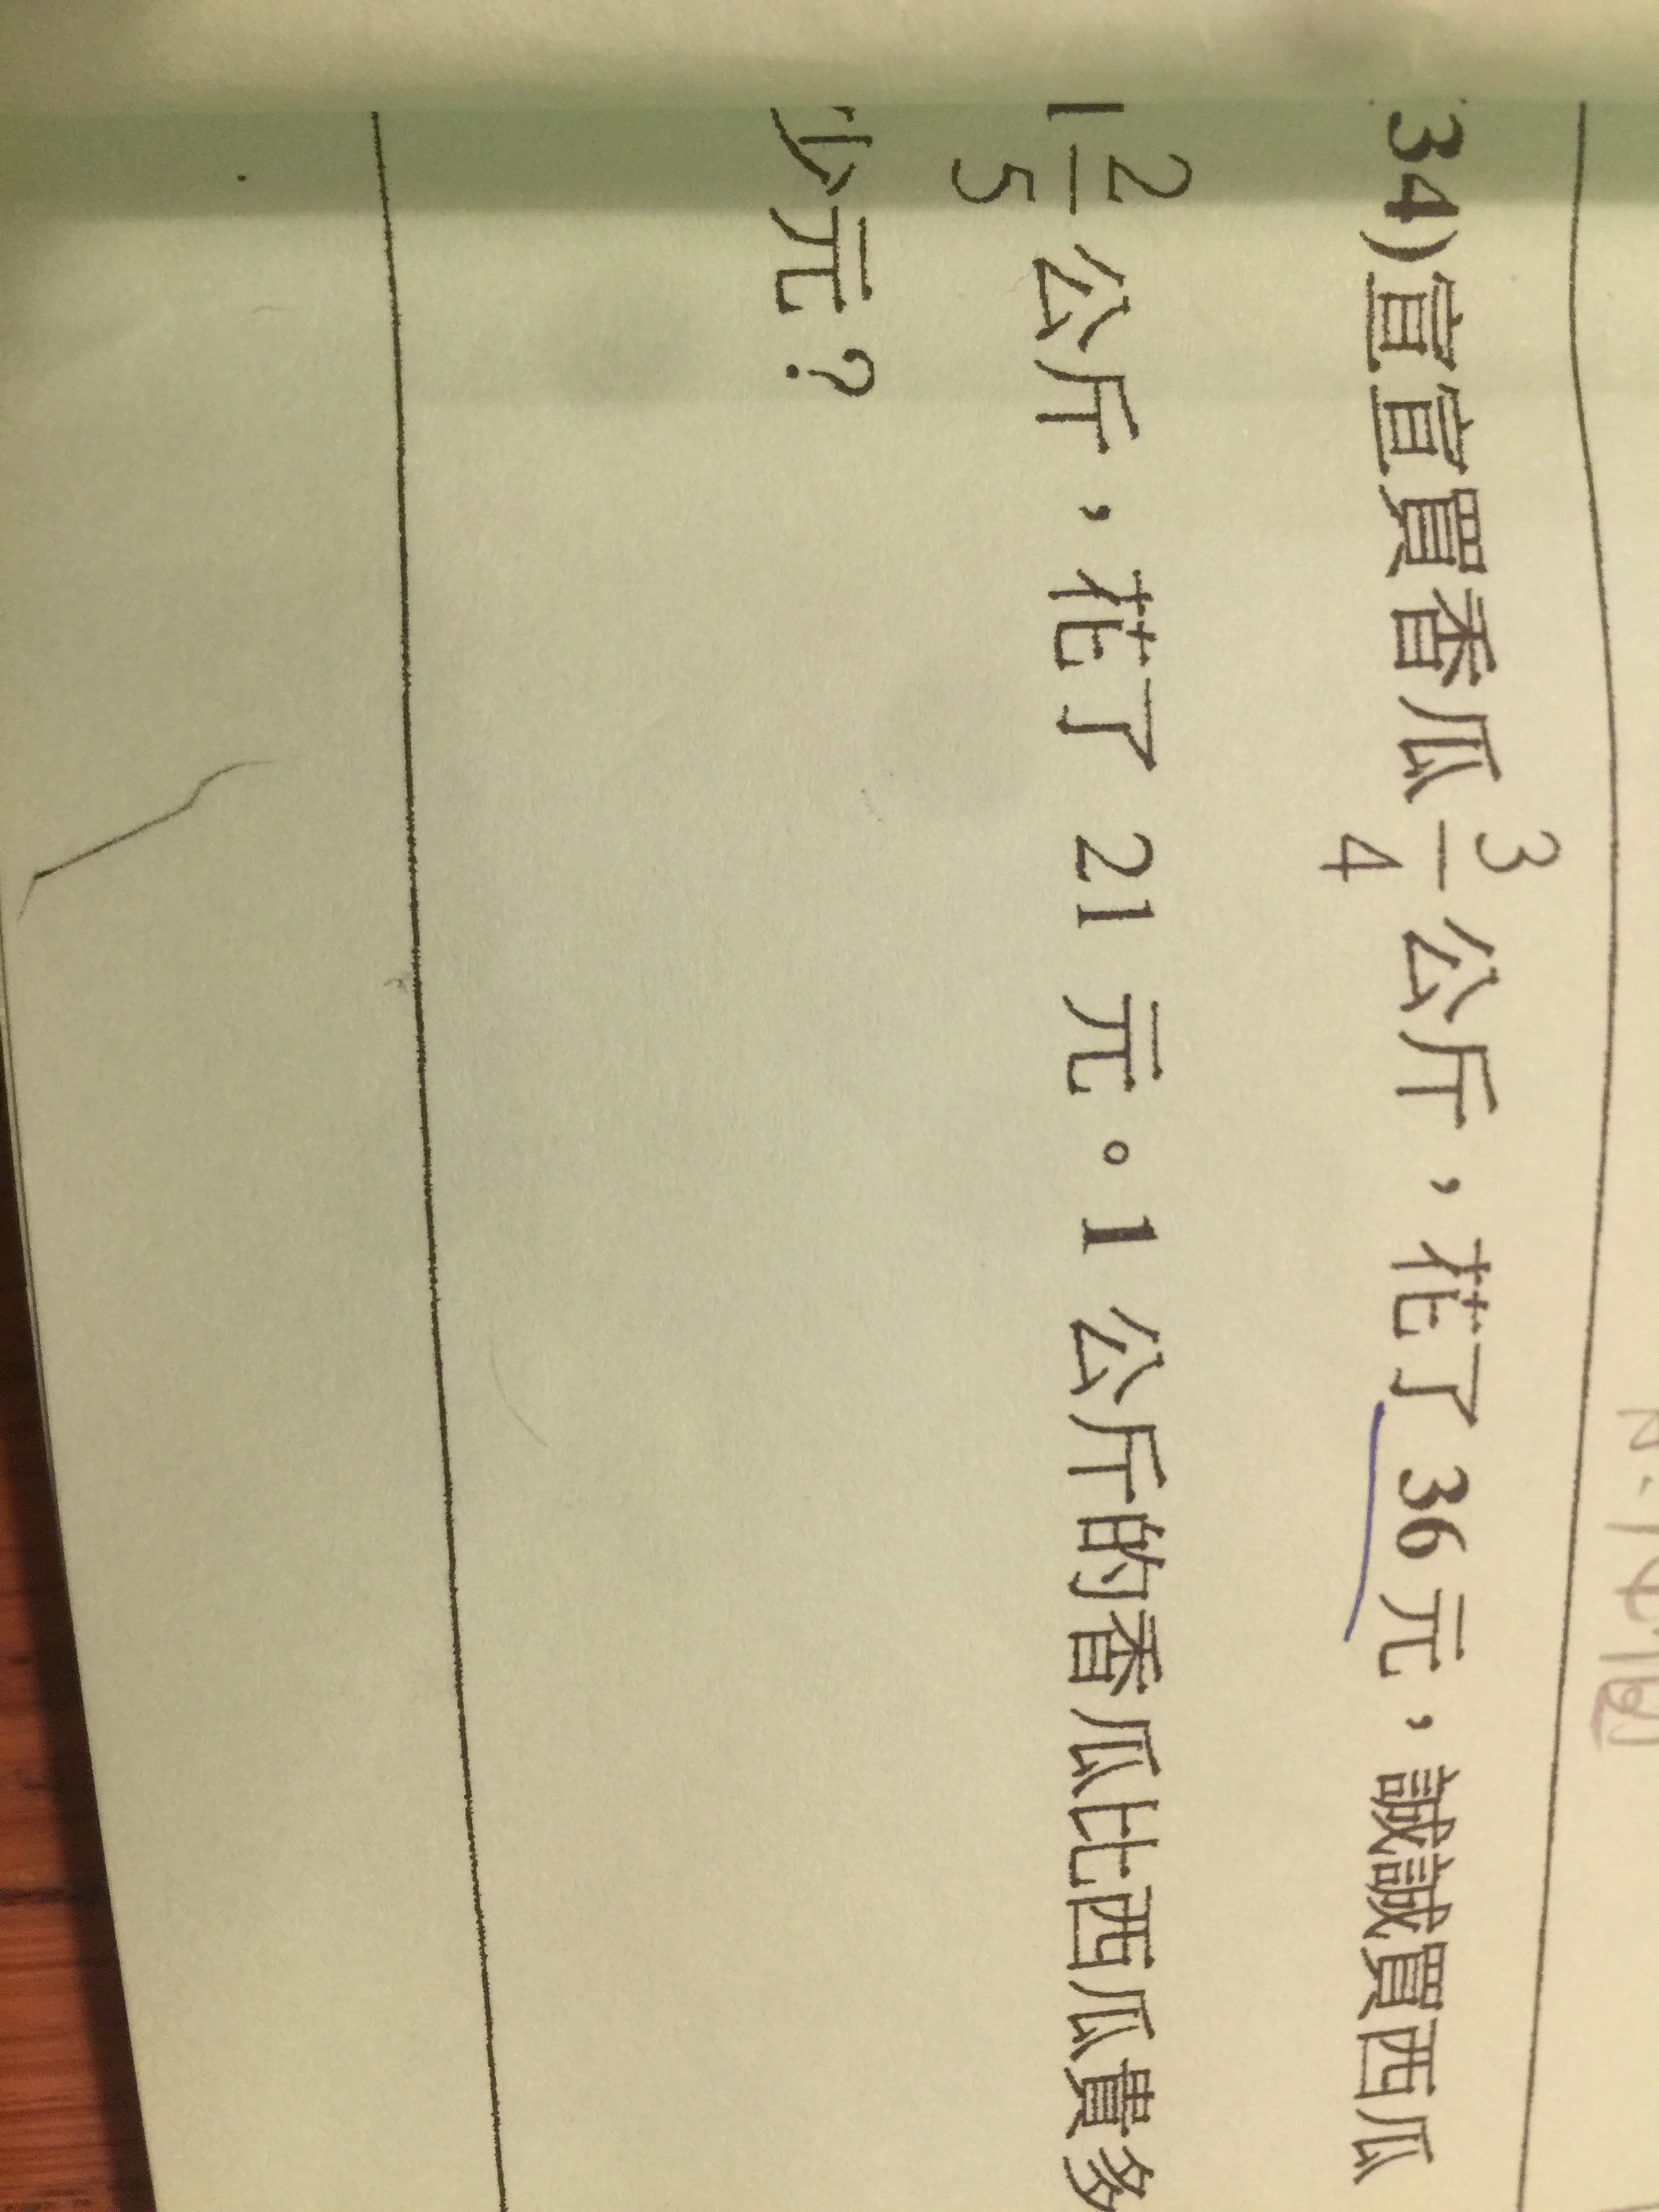 34)宣宣買香瓜 3/4 公斤，花了 36 元，誠誠買西瓜
1 2/5 公斤，花了 21 元。1 公斤的香瓜比西瓜貴多
少元？